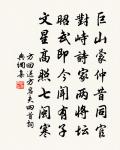 巨山蒙仲昔同官
對峙詩家兩將壇
昭武即今聞有子
文星高照七閩寒
方回送方岩夫四首詞
典詞集